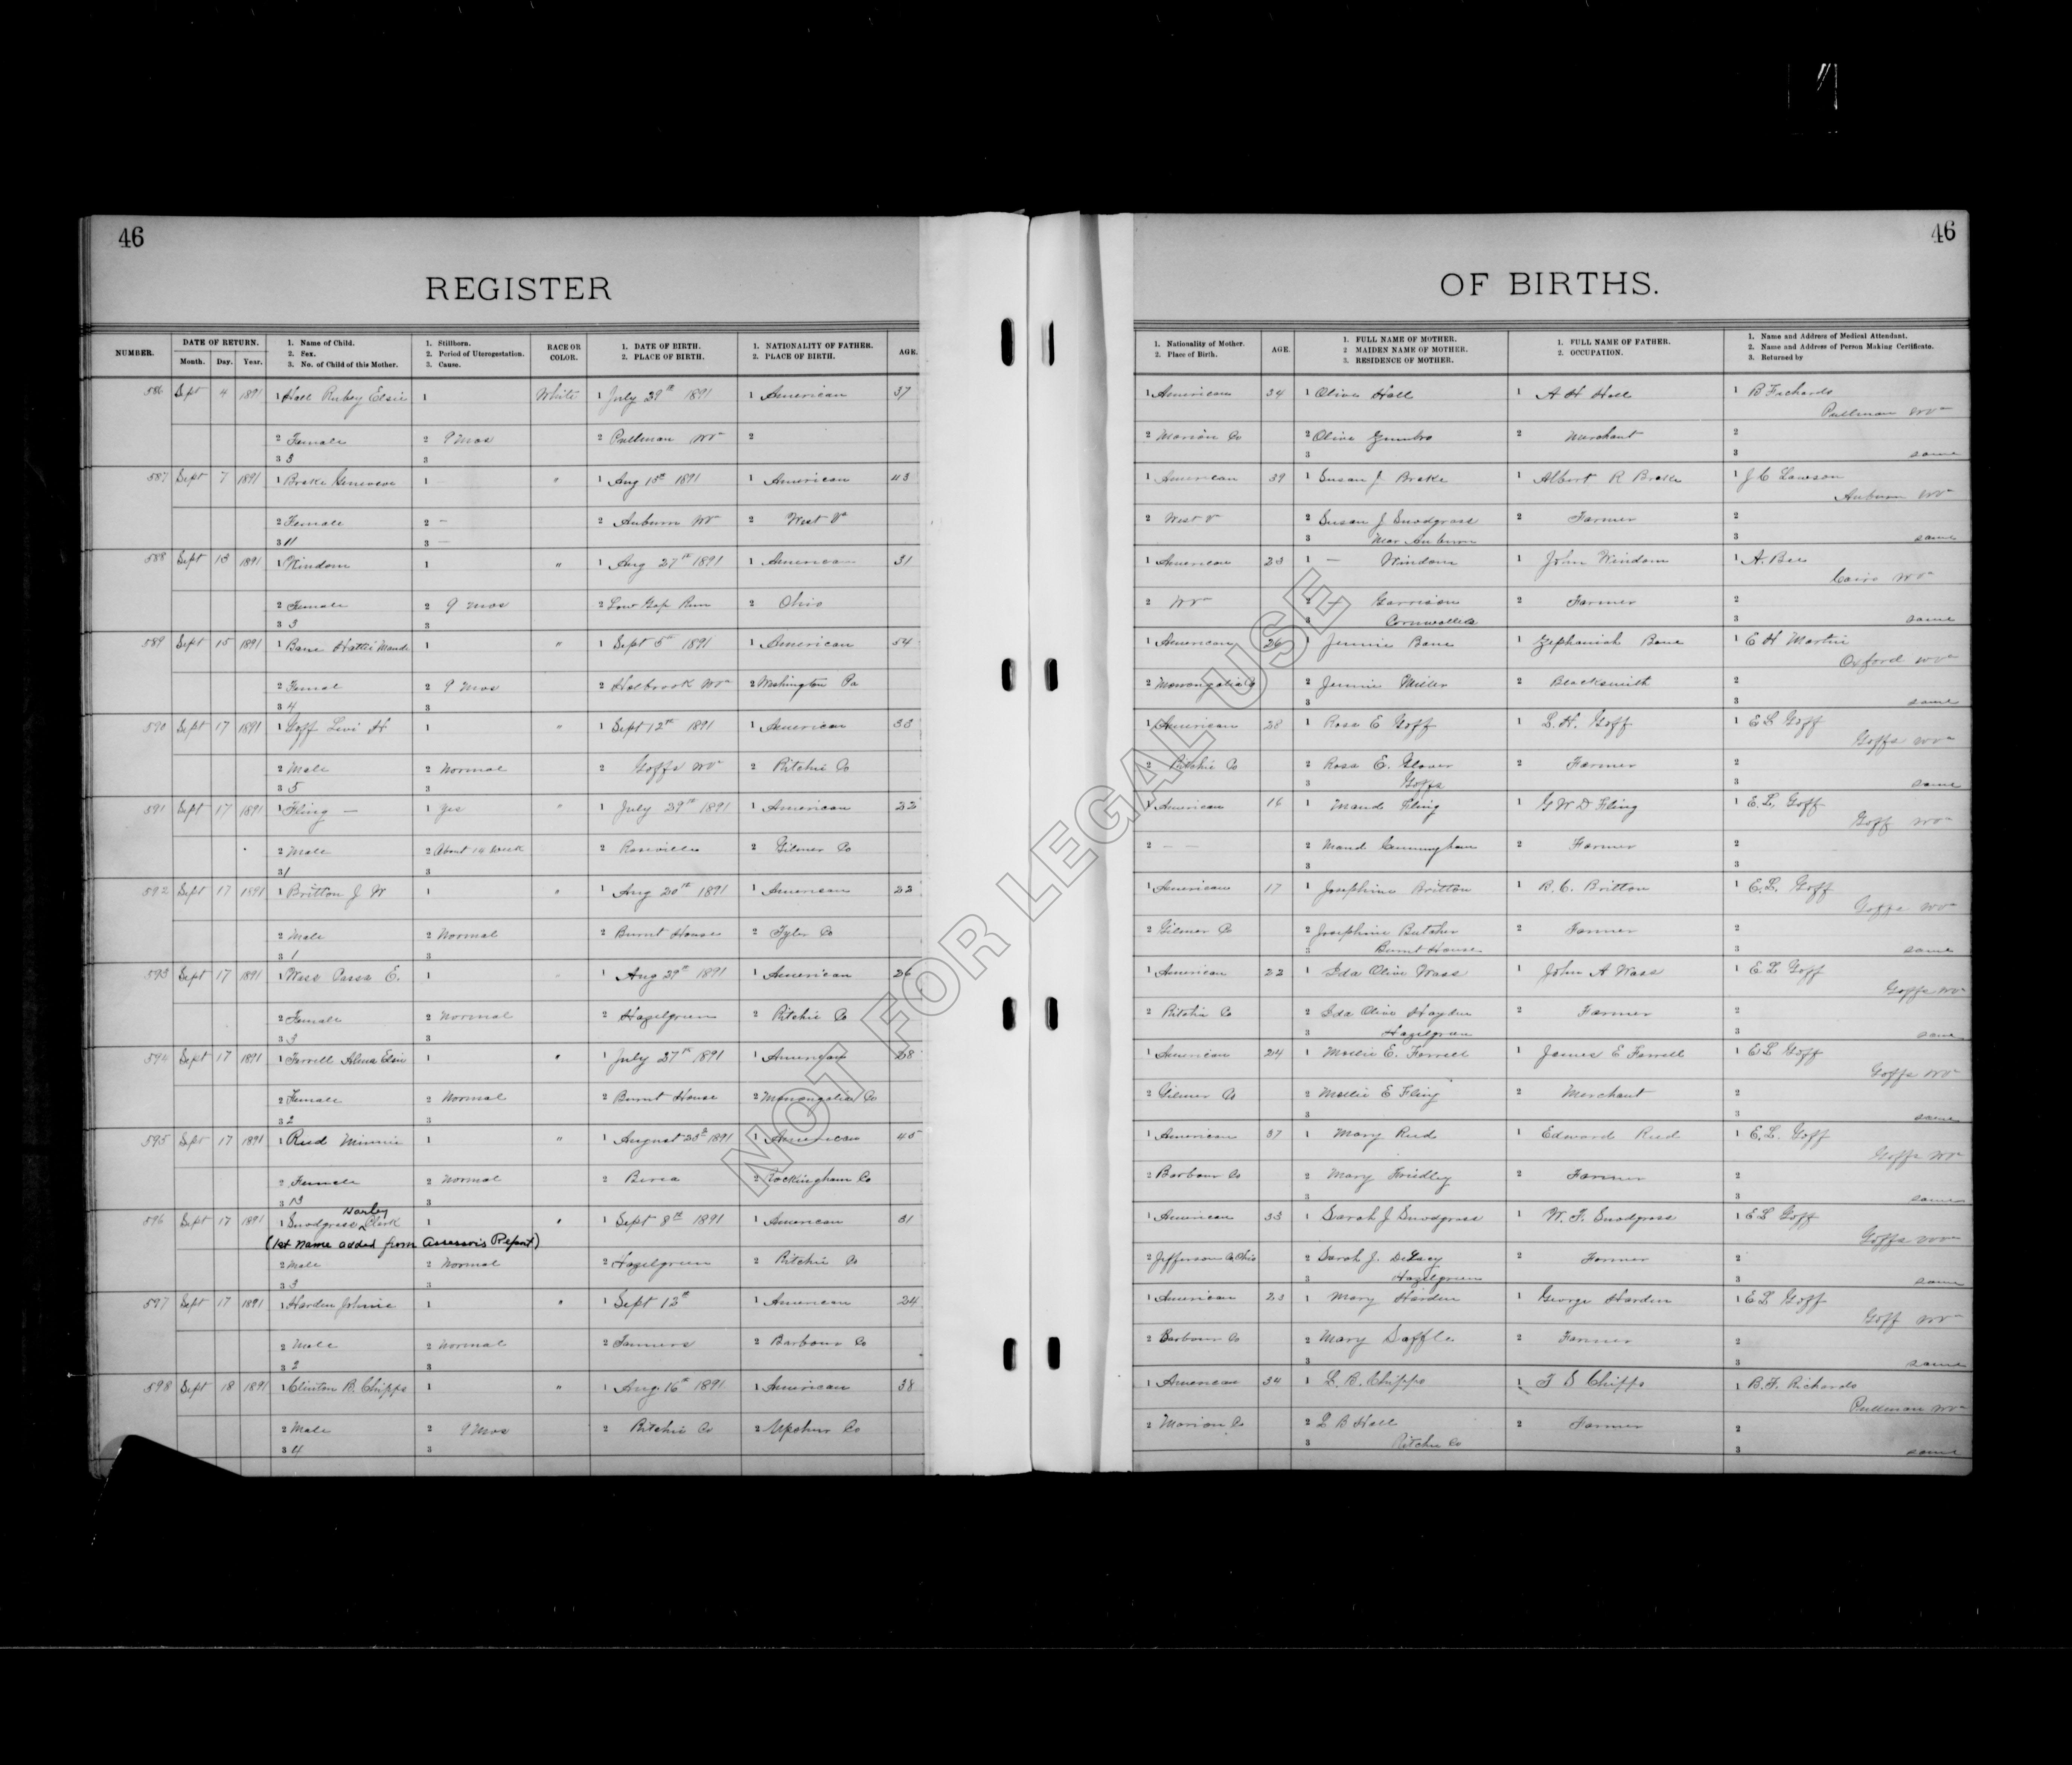 46
46
REGISTER
OF BIRTHS.
NUMBER.
DATE OF RETURN.
Month. Day. Year.
1. Name of Child.
2. Sex.
3. No. of Child of this Mother.
1. Stillborn.
2. Period of Uterogestation.
3. Cause.
RACE OR
COLOR.
1. DATE OF BIRTH.
2. PLACE OF BIRTH.
1. NATIONALITY OF FATHER.
2. PLACE OF BIRTH.
AGE.
1. Nationality of Mother.
2. Place of Birth.
AGE.
1. FULL NAME OF MOTHER.
2 MAIDEN NAME OF MOTHER.
3. RESIDENCE OF MOTHER.
1. FULL NAME OF FATHER.
2. OCCUPATION.
1. Name and Address of Medical Attendant.
2. Name and Address of Person Making Certificate.
3. Returned by
586 Sept 4 1891 1 Hall Rubey Elsie 1 White 1 July 29th 1891 1 American 37 1 American 34 1 Olive Hall 1 A H Hall 1 B F Richards
Pullman WVa
2 Female 2 9 Mos 2 Pullman WVa 2 2 Marion Co 2 Olive 2 Merchant 2
3 3 3 3 3 same
587 Sept 7 1891 1 Brake Genevieve 1 " 1 Aug 15th 1891 1 American 43 1 American 39 1 Susan J Brake 1 Albert R Brake 1 J C Lawson
Auburn WVa
2 Female 2 – 2 Auburn WVa 2 West Va 2 West Va 2 Susan J Snodgrass 2 Farmer 2
3 11 3 – 3 Near Auburn 3 same
588 Sept 13 1891 1 Windom 1 " 1 Aug 27th 1891 1 American 31 1 American 23 1 – Windom 1 John Windom 1 A. Bee
Cairo WVa
2 Female 2 9 mos 2 Low Gap Run 2 Ohio 2 WVa 2 – Garrison 2 Farmer 2
3 3 3 3 Cornwallis 3 same
589 Sept 15 1891 1 Bane Hattie Maude 1 " 1 Sept 5th 1891 1 American 54 1 American 26 1 Jennie Bane 1 Zephaniah Bane 1 E H Martin
Oxford WVa
2 Femal 2 9 Mos 2 Holbrook WVa 2 Washington Pa 2 Monongalia Co 2 Jennie Miller 2 Blacksmith 2
3 4 3 3 3 same
590 Sept 17 1891 1 Goff Levi H 1 " 1 Sept 12th 1891 1 American 33 1 American 28 1 Rosa E Goff 1 L. H. Goff 1 E L Goff
Goffs WVa
2 Male 2 Normal 2 Goffs WVa 2 Ritchie Co 2 Ritchie Co 2 Rosa E. Glover 2 Farmer 2
3 5 3 3 Goffs 3 same
591 Sept 17 1891 1 Fling — 1 Yes " 1 July 29th 1891 1 American 22 1 American 16 1 Maud Fling 1 G W D Fling 1 E. L. Goff
Goff WVa
2 Male 2 About 14 Week 2 Roseville 2 Gilmer Co 2 — — 2 Maud Cunningham 2 Farmer 2
3 1 3 3 3
592 Sept 17 1891 1 Britton J W 1 " 1 Aug 20th 1891 1 American 22 1 American 17 1 Josephine Britton 1 B. C. Britton 1 E. L. Goff
Goffs WVa
2 Male 2 Normal 2 Burnt House 2 Tyler Co 2 Gilmer Co 2 Josephine Butcher 2 Farmer 2
3 1 3 3 Burnt House 3 same
593 Sept 17 1891 1 Wass E. 1 " 1 Aug 29th 1891 1 American 26 1 American 22 1 Ida Olive Wass 1 John A Wass 1 E L Goff
Goffs WVa
2 Female 2 Normal 2 Hazelgreen 2 Ritchie Co 2 Ritchie Co 2 Ida Olive Hayden 2 Farmer 2
3 3 3 3 Hazelgreen 3 same
594 Sept 17 1891 1 Ferrell Alma Elsie 1 " 1 July 27th 1891 1 American 28 1 American 24 1 Mollie E. Ferrell 1 James E Ferrell 1 E L Goff
Goffs WVa
2 Female 2 Normal 2 Burnt House 2 Monongalia Co 2 Gilmer Co 2 Mollie E Fling 2 Merchant 2
3 2 3 3 3 same
595 Sept 17 1891 1 Reed Minnie 1 " 1 August 23th 1891 1 American 45 1 American 37 1 Mary Reed 1 Edward Reed 1 E. L. Goff
Goffs WVa
2 Female 2 Normal 2 Berea 2 Rockingham Co 2 Barbour Co 2 Mary Fridley 2 Farmer 2
3 13 3 3 3 same
Harley
596 Sept 17 1891 1 Snodgrass Clerk 1 " 1 Sept 8th 1891 1 American 31 1 American 33 1 Sarah J Snodgrass 1 W. F. Snodgrass 1 E L Goff
(1st name added from Assessor's Report)
Goffs WVa
2 Male 2 Normal 2 Hazelgreen 2 Ritchie Co 2 Jefferson Co Ohio 2 Sarah J. DeLacy 2 Farmer 2
3 3 3 3 Hazelgreen 3 same
597 Sept 17 1891 1 Harden Johnie 1 " 1 Sept 12th 1 American 24 1 American 23 1 Mary Harden 1 George Harden 1 E L Goff
Goff WVa
2 Male 2 Normal 2 Tanners 2 Barbour Co 2 Barbour Co 2 Mary Saffle 2 Farmer 2
3 2 3 3 3 same
598 Sept 18 1891 1 Clinton B. Chipps 1 " 1 Aug. 16th 1891 1 American 38 1 American 34 1 L. B. Chipps 1 T S Chipps 1 B. F. Richards
Pullman WVa
2 Male 2 9 Mos 2 Ritchie Co 2 Upshur Co 2 Marion Co 2 L B Hall 2 Farmer 2
3 4 3 3 Ritchie Co 3 same
NOT FOR LEGAL USE